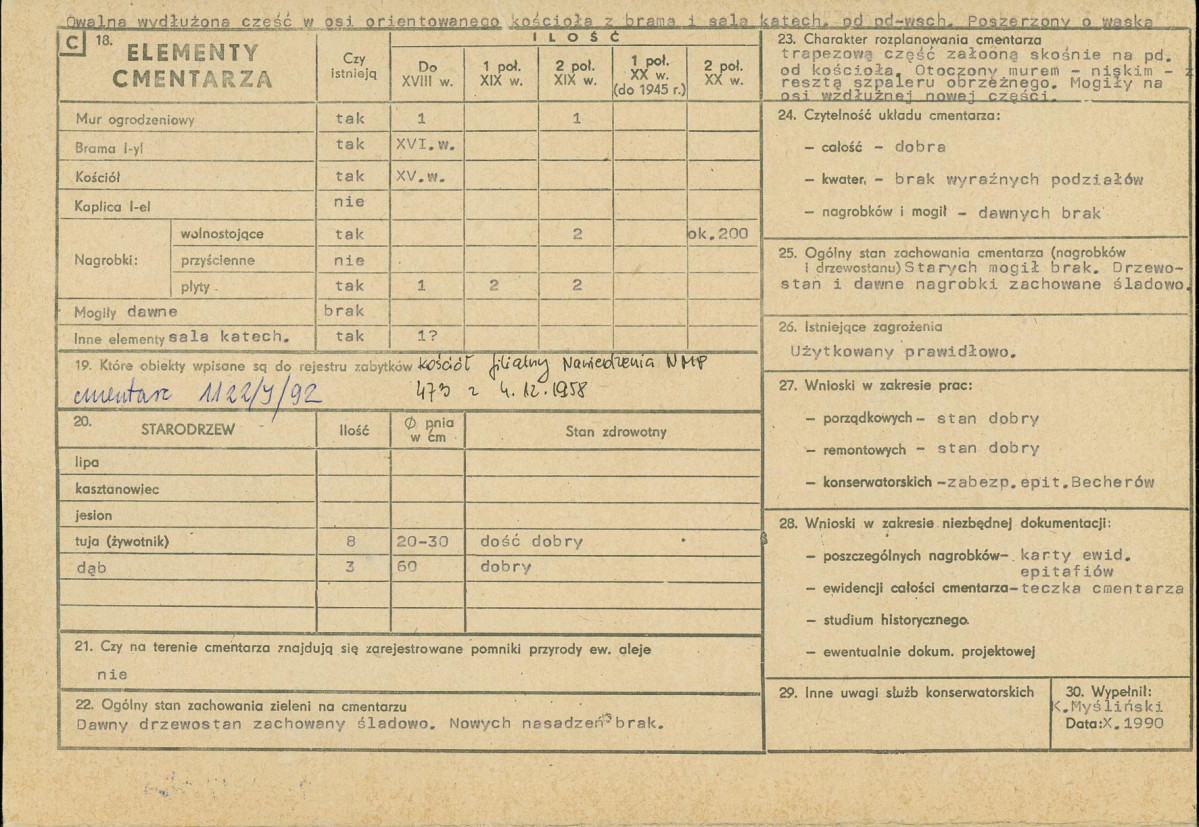 Owalna wydłużona część w osi orientowanego kościoła z brama i sala katech. od pd-wsch. Poszerzony o waska
C 18. ELEMENTY CMENTARZA
Czy istnieją
ILOŚĆ
Do XVIII w.
1 poł. XIX w.
2 poł. XIX w.
1 poł. XX w. (do 1945 r.)
2 poł. XX w.
Mur ogrodzeniowy tak 1 1
Brama I-yl tak XVI.w.
Kościół tak XV.w.
Kaplica I-el nie
Nagrobki:
wolnostojące tak 2 ok.200
przyścienne nie
płyty tak 1 2 2
Mogiły dawne brak
Inne elementy sala katech. tak 1?
19. Które obiekty wpisane są do rejestru zabytków kościół filialny Nawiedzenia NMP
cmentarz 1122/J/92 473 z 4.12.1958
20. STARODRZEW Ilość Ø pnia w cm Stan zdrowotny
lipa
kasztanowiec
jesion
tuja (żywotnik) 8 20-30 dość dobry
dąb 3 60 dobry
21. Czy na terenie cmentarza znajdują się zarejestrowane pomniki przyrody ew. aleje
nie
22. Ogólny stan zachowania zieleni na cmentarzu
Dawny drzewostan zachowany śladowo. Nowych nasadzeń brak.
23. Charakter rozplanowania cmentarza
trapezową część załooną skośnie na pd.
od kościoła. Otoczony murem - niskim - z
resztą szpaleru obrzeżnego. Mogiły na
osi wzdłużnej nowej części.
24. Czytelność układu cmentarza:
– całość - dobra
– kwater. - brak wyraźnych podziałów
– nagrobków i mogił - dawnych brak
25. Ogólny stan zachowania cmentarza (nagrobków
i drzewostanu) Starych mogił brak. Drzewo-
stan i dawne nagrobki zachowane śladowo.
26. Istniejące zagrożenia
Użytkowany prawidłowo.
27. Wnioski w zakresie prac:
– porządkowych - stan dobry
– remontowych - stan dobry
– konserwatorskich -zabezp.epit.Becherów
28. Wnioski w zakresie niezbędnej dokumentacji:
– poszczególnych nagrobków- karty ewid.
epitafiów
– ewidencji całości cmentarza-teczka cmentarza
– studium historycznego.
– ewentualnie dokum. projektowej
29. Inne uwagi służb konserwatorskich
30. Wypełnił:
K.Myśliński
Data:X.1990